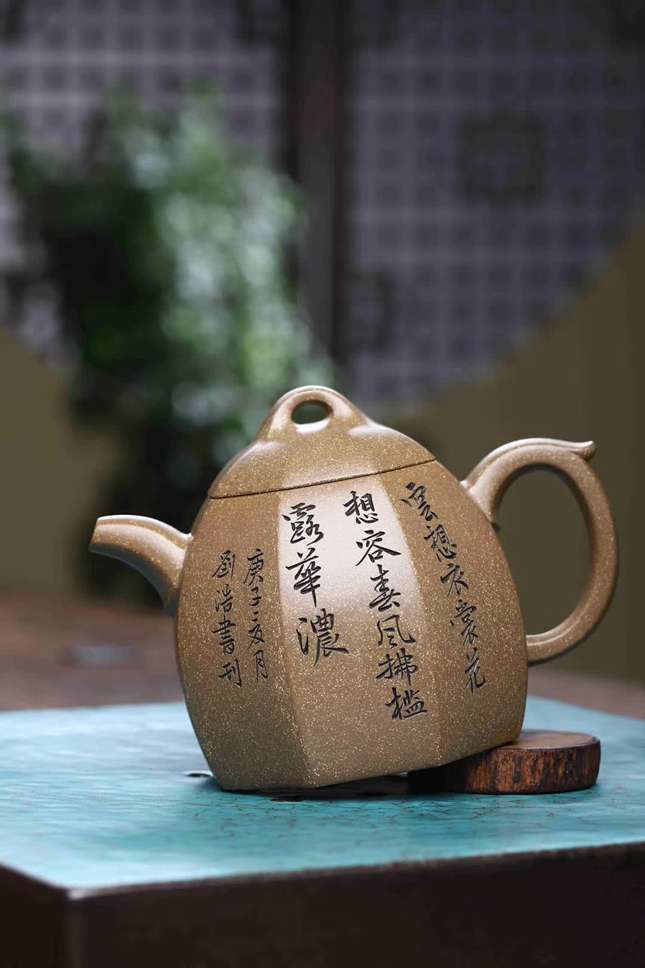 雲想衣裳花
想容春風拂檻
露華濃
庚子夏月
劉浩書刊